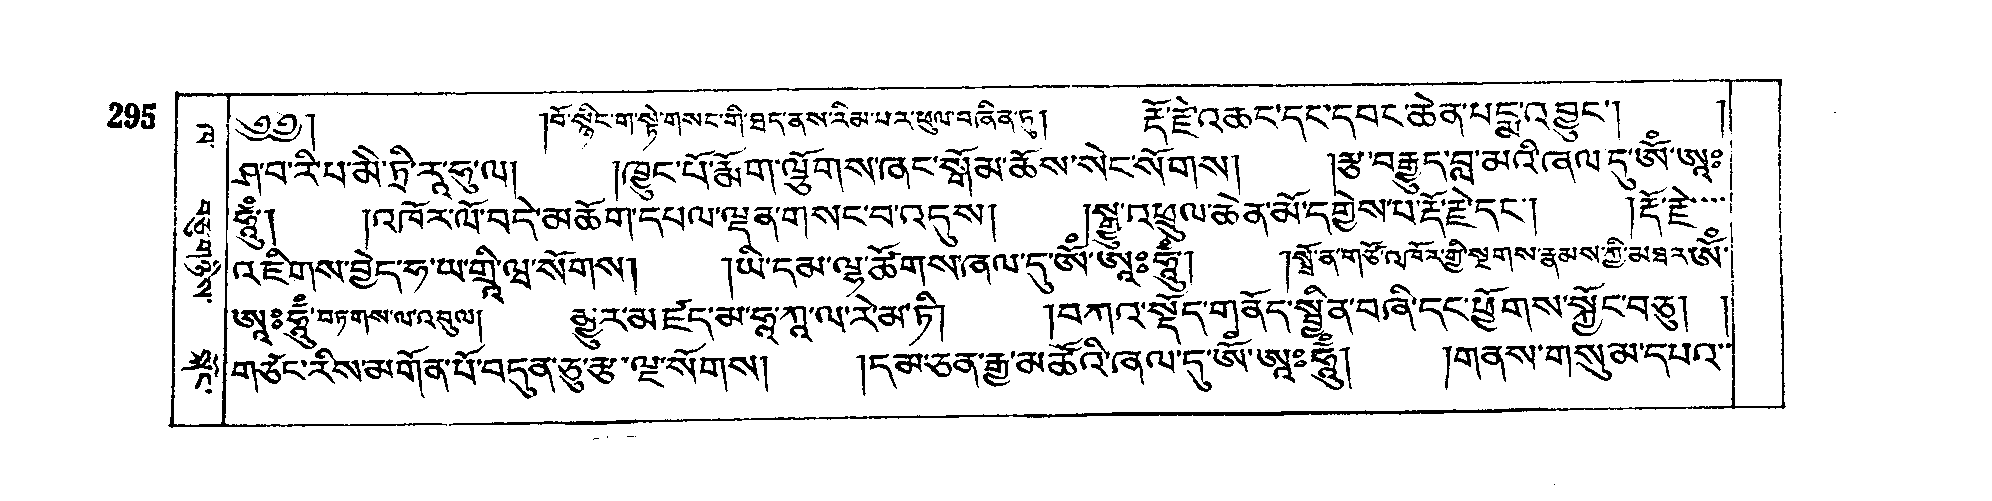 295
༄༅། །བོ་སྙིང་ག་སྟེ་གསང་གི་ཐད་ནས་རིམ་པར་ཕུལ་བཞིན་ཏུ། རྡོ་རྗེ་འཆང་དང་དབང་ཆེན་པདྨ་འབྱུང་། །
ཤ་བ་རི་པ་མེ་ཏྲི་རཱ་ཧུ་ལ། །ཁྱུང་པོ་རྨོག་ལྕོགས་ཞང་སྒོམ་ཆོས་སེང་སོགས། །རྩ་བརྒྱུད་བླ་མའི་ཞལ་དུ་ཨོཾ་ཨཱཿ
ཧཱུྃ། །འཁོར་ལོ་བདེ་མཆོག་དཔལ་ལྡན་གསང་བ་འདུས། །སྒྱུ་འཕྲུལ་ཆེན་མོ་དགྱེས་པ་རྡོ་རྗེ་དང་། །རྡོ་རྗེ་
འཇིགས་བྱེད་ཧ་ཡ་གྲཱི་ཝ་སོགས། །ཡི་དམ་ལྷ་ཚོགས་ཞལ་དུ་ཨོཾ་ཨཱཿཧཱུྃ། །སྤྲོ་ན་གཙོ་འཁོར་གྱི་སྔགས་རྣམས་ཀྱི་མཐར་ཨོཾ་
ཨཱཿཧཱུྃ་བཏགས་ལ་འབུལ། མྱུར་མཛད་མ་ཧཱ་ཀཱ་ལ་རེ་མ་ཏི། །བཀའ་སྡོད་གནོད་སྦྱིན་བཞི་དང་ཕྱོགས་སྐྱོང་བཅུ། །
གཙང་རིས་མགོན་པོ་བདུན་ཅུ་རྩ་ལྔ་སོགས། །དམ་ཅན་རྒྱ་མཚོའི་ཞལ་དུ་ཨོཾ་ཨཱཿཧཱུྃ། །གནས་གསུམ་དཔའ་